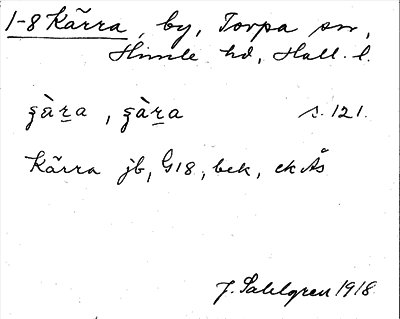 1-8 Kärra, by, Torpa sn,
Himle hd, Hall. l.
ʂàr̲a, ʂàr̲a s. 121.
Kärra jb, G18, bek, ekÅs
J. Sahlgren 1918